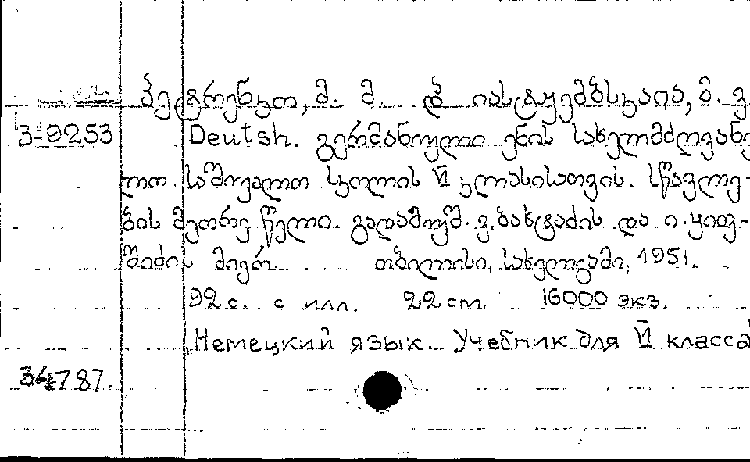 პეტრენკო, მ. მ. და იასტრემბსკაია, ბ. ვ.
3-9253 Deutsh. გერმანული ენის სახელმძღვანე-
ლო საშუალო სკოლის VI კლასისათვის. სწავლე-
ბის მეორე წელი. გადამუშ. ვ. ბახტაძის და ი. ყიფ-
შიძის მიერ. თბილისი, სახელგამი, 1951.
92 с. с илл. 22 cm. 16000 экз.
Немецкий язык. Учебник для VI класса
34787.